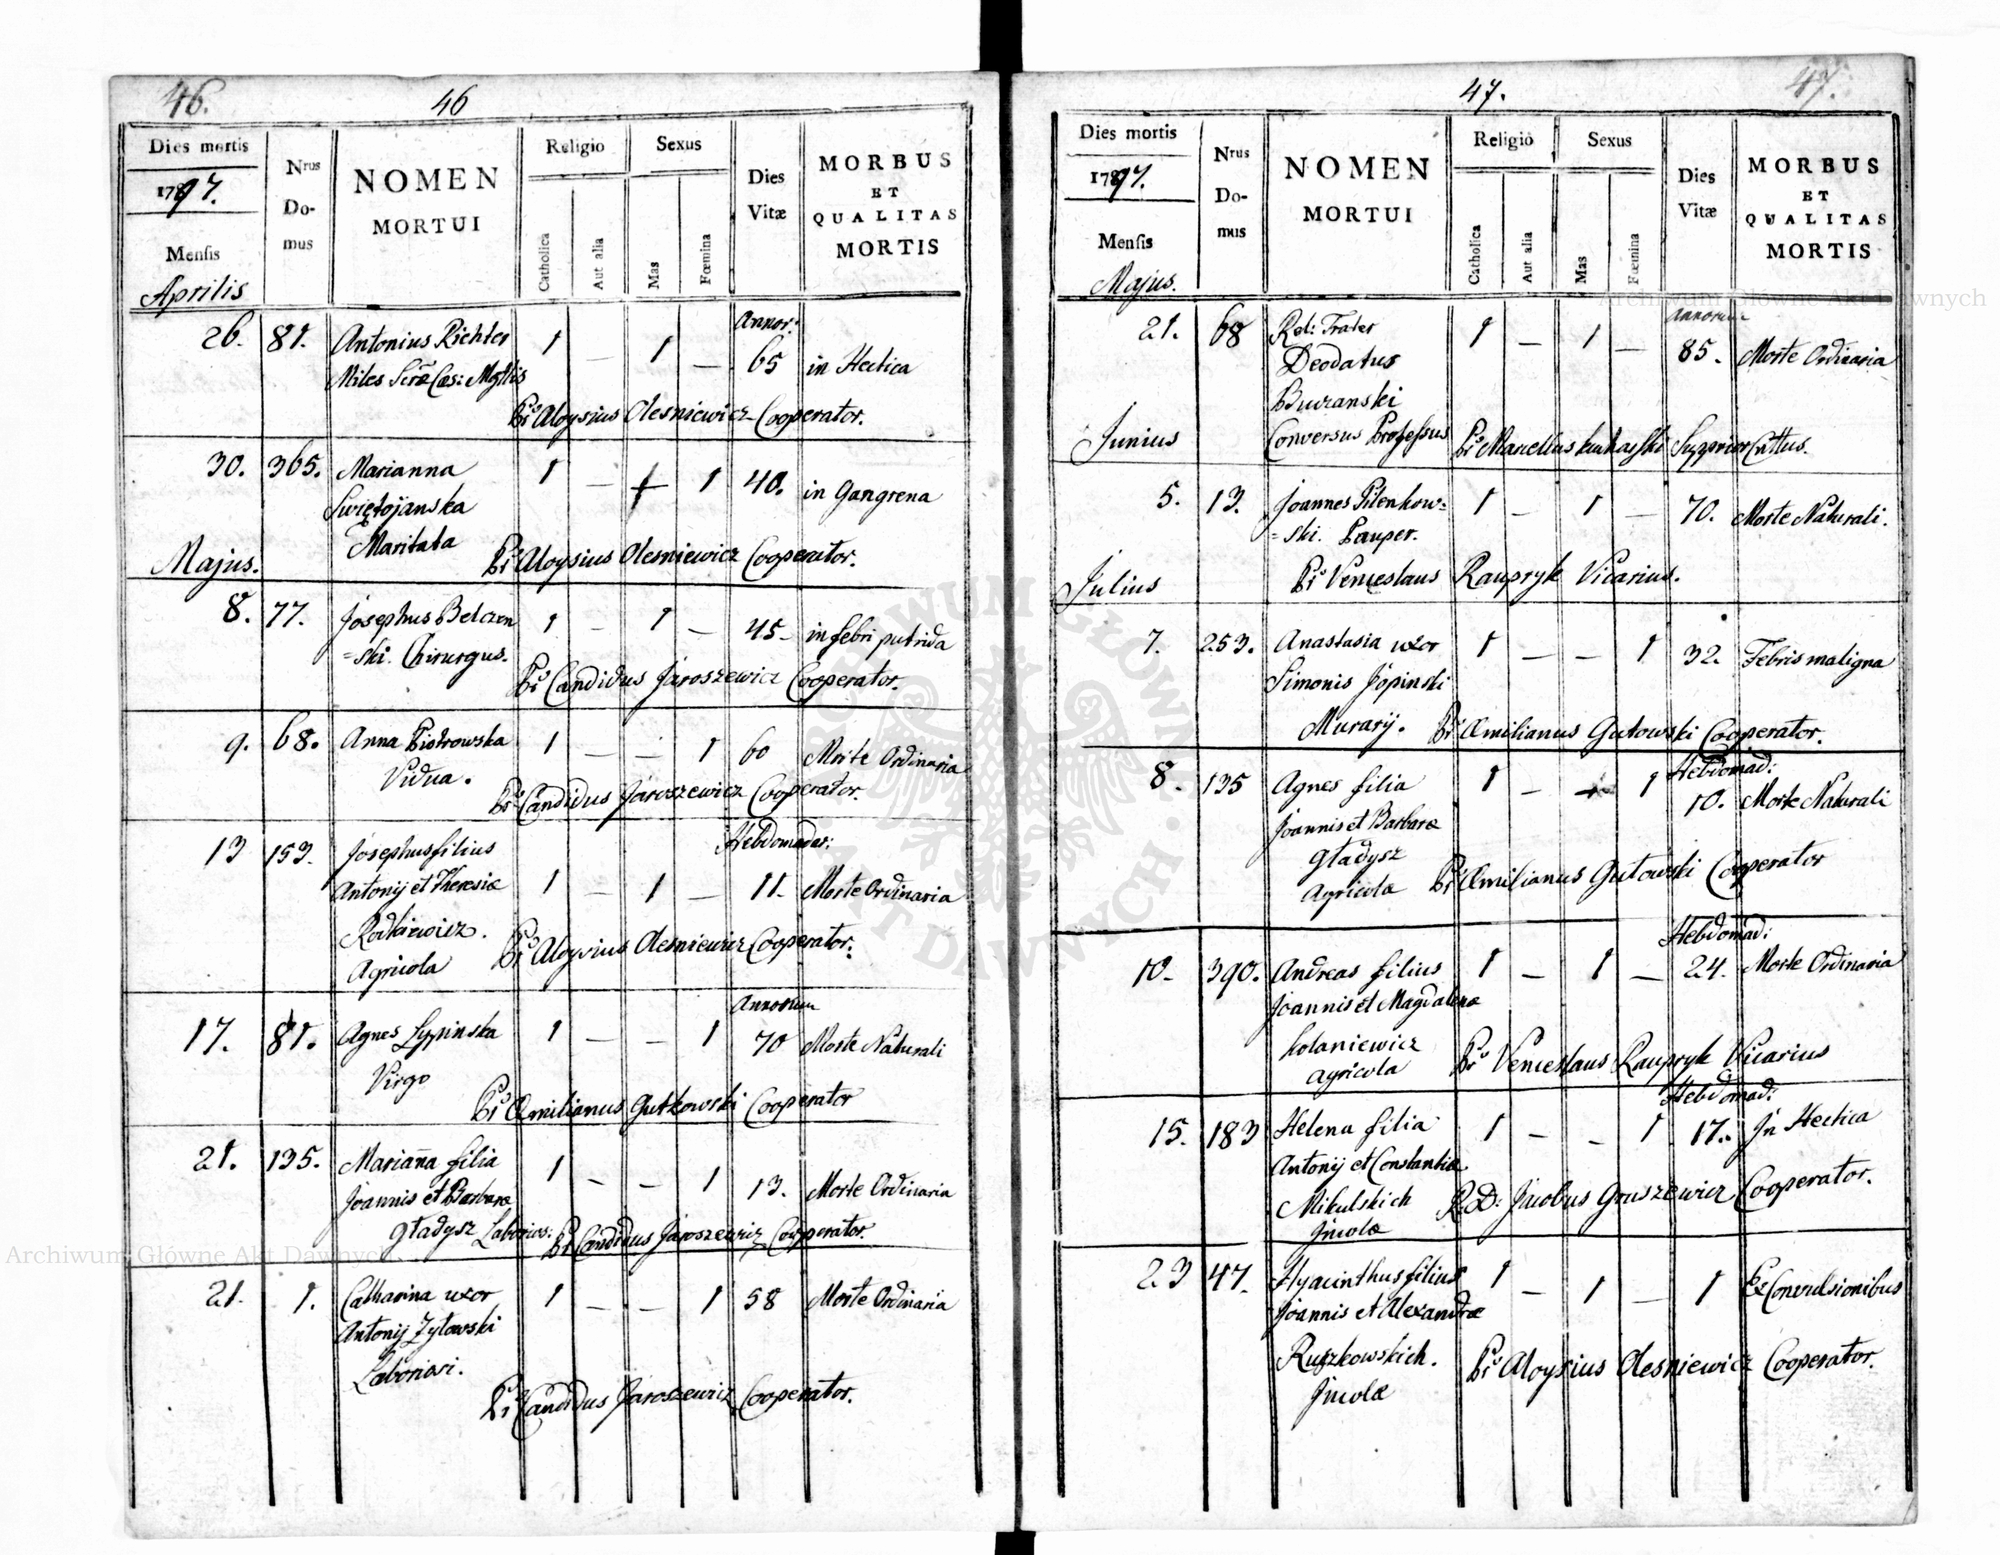 46.
46
Dies mortis
1797.
Mensis
Aprilis
Nrus
Do-
mus
NOMEN
MORTUI
Religio
Catholica
Aut alia
Sexus
Mas
Fœmina
Dies
Vitæ
MORBUS
ET
QUALITAS
MORTIS
26. 81. Antonius Richter 1 — 1 — Annor: 65 in Hectica
Miles Scræ Cæs: Mgttis
Pr Aloysius Olesniewicz Cooperator.
30. 365. Marianna 1 — 1 40. in Gangrena
Swiętojanska
Maritata
Pr Aloysius Olesniewicz Cooperator.
Majus.
8. 77. Josephus Belczen 1 — 1 — 45 in febri putrida
=ski. Chirurgus.
Pr Candidus Jaroszewicz Cooperator.
9. 68. Anna Piotrowska 1 — — 1 60 Morte Ordinaria
Vidua.
Pr Candidus Jaroszewicz Cooperator.
13 153. Josephus filius Hebdomadar:
Antonij et Theresiæ 1 — 1 — 11. Morte Ordinaria
Rodkiewicz.
Agricola
Pr Aloysius Olesniewicz Cooperator.
17. 81. Agnes Lypinska 1 — — 1 Annorum 70 Morte Naturali
Virgo
Pr Æmilianus Gutkowski Cooperator
21. 135. Mariana filia 1 — — 1 13. Morte Ordinaria
Joannis et Barbaræ
Gładysz Laborios:
Pr Candidus Jaroszewicz Cooperator.
21. 1. Catharina uxor 1 — — 1 58 Morte Ordinaria
Antonij Zytowski
Laboriosi.
Pr Candidus Jaroszewicz Cooperator.
47.
47.
Dies mortis
1797.
Mensis
Majus.
Nrus
Do-
mus
NOMEN
MORTUI
Religio
Catholica
Aut alia
Sexus
Mas
Fœmina
Dies
Vitæ
MORBUS
ET
QUALITAS
MORTIS
21. 68 Rel: Frater 1 — 1 — Annorum 85. Morte Ordinaria
Deodatus
Buranski
Conversus Professus
Pr Marcellus Supprior
Junius
5. 13. Joannes Pilenkow= 1 — 1 — 70. Morte Naturali.
=ski. Pauper.
Pr Venceslaus Raupryk Vicarius.
Julius
7. 253. Anastasia uxor 1 — — 1 32. Febris maligna
Simonis Jopinski
Murarij.
Pr Æmilianus Gutowski Cooperator.
8. 135 Agnes filia 1 — 1 Hebdomad: 10. Morte Naturali
Joannis et Barbaræ
Gładysz
Agricolæ
Pr Æmilianus Gutowski Cooperator
10. 390. Andreas filius 1 — 1 — Hebdomad: 24. Morte Ordinaria
Joannis et Magdalenæ
Kolaniewicz
Agricola
Pr Venceslaus Raupryk Vicarius
15. 183 Helena filia 1 — — 1 Hebdomad: 17. In Hectica
Antonij et Constantiæ
Mikulskich
Jncolæ
R.D: Jacobus Gruszewicz Cooperator.
23 47. Hyacinthus filius 1 — 1 — 1 Ex Convulsionibus
Joannis et Alexandræ
Ruszkowskich.
Jncolæ
Pr Aloysius Olesniewicz Cooperator.
Archiwum Główne Akt Dawnych
Archiwum Główne Akt Dawnych
ARCHIWUM GŁÓWNE AKT DAWNYCH